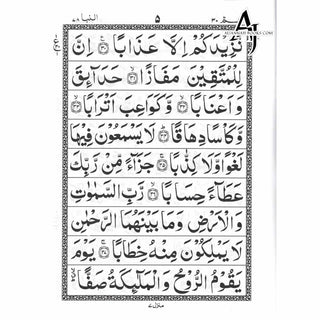 النبا ٧٨ ٥ عم ٣٠
نَّزِيْدَكُمْ اِلَّا عَذَابًا ۝٣٠ اِنَّ
لِلْمُتَّقِيْنَ مَفَازًا ۝٣١ حَدَآئِقَ
وَاَعْنَابًا ۝٣٢ وَّكَوَاعِبَ اَتْرَابًا ۝٣٣
وَّكَاْسًا دِهَاقًا ۝٣٤ لَا يَسْمَعُوْنَ فِيْهَا
لَغْوًا وَّلَا كِذّٰبًا ۝٣٥ جَزَآءً مِّنْ رَّبِّكَ
عَطَآءً حِسَابًا ۝٣٦ رَّبِّ السَّمٰوٰتِ
وَالْاَرْضِ وَمَا بَيْنَهُمَا الرَّحْمٰنِ
لَا يَمْلِكُوْنَ مِنْهُ خِطَابًا ۝٣٧ يَوْمَ
يَقُوْمُ الرُّوْحُ وَالْمَلٰٓئِكَةُ صَفًّا
منزل ٧